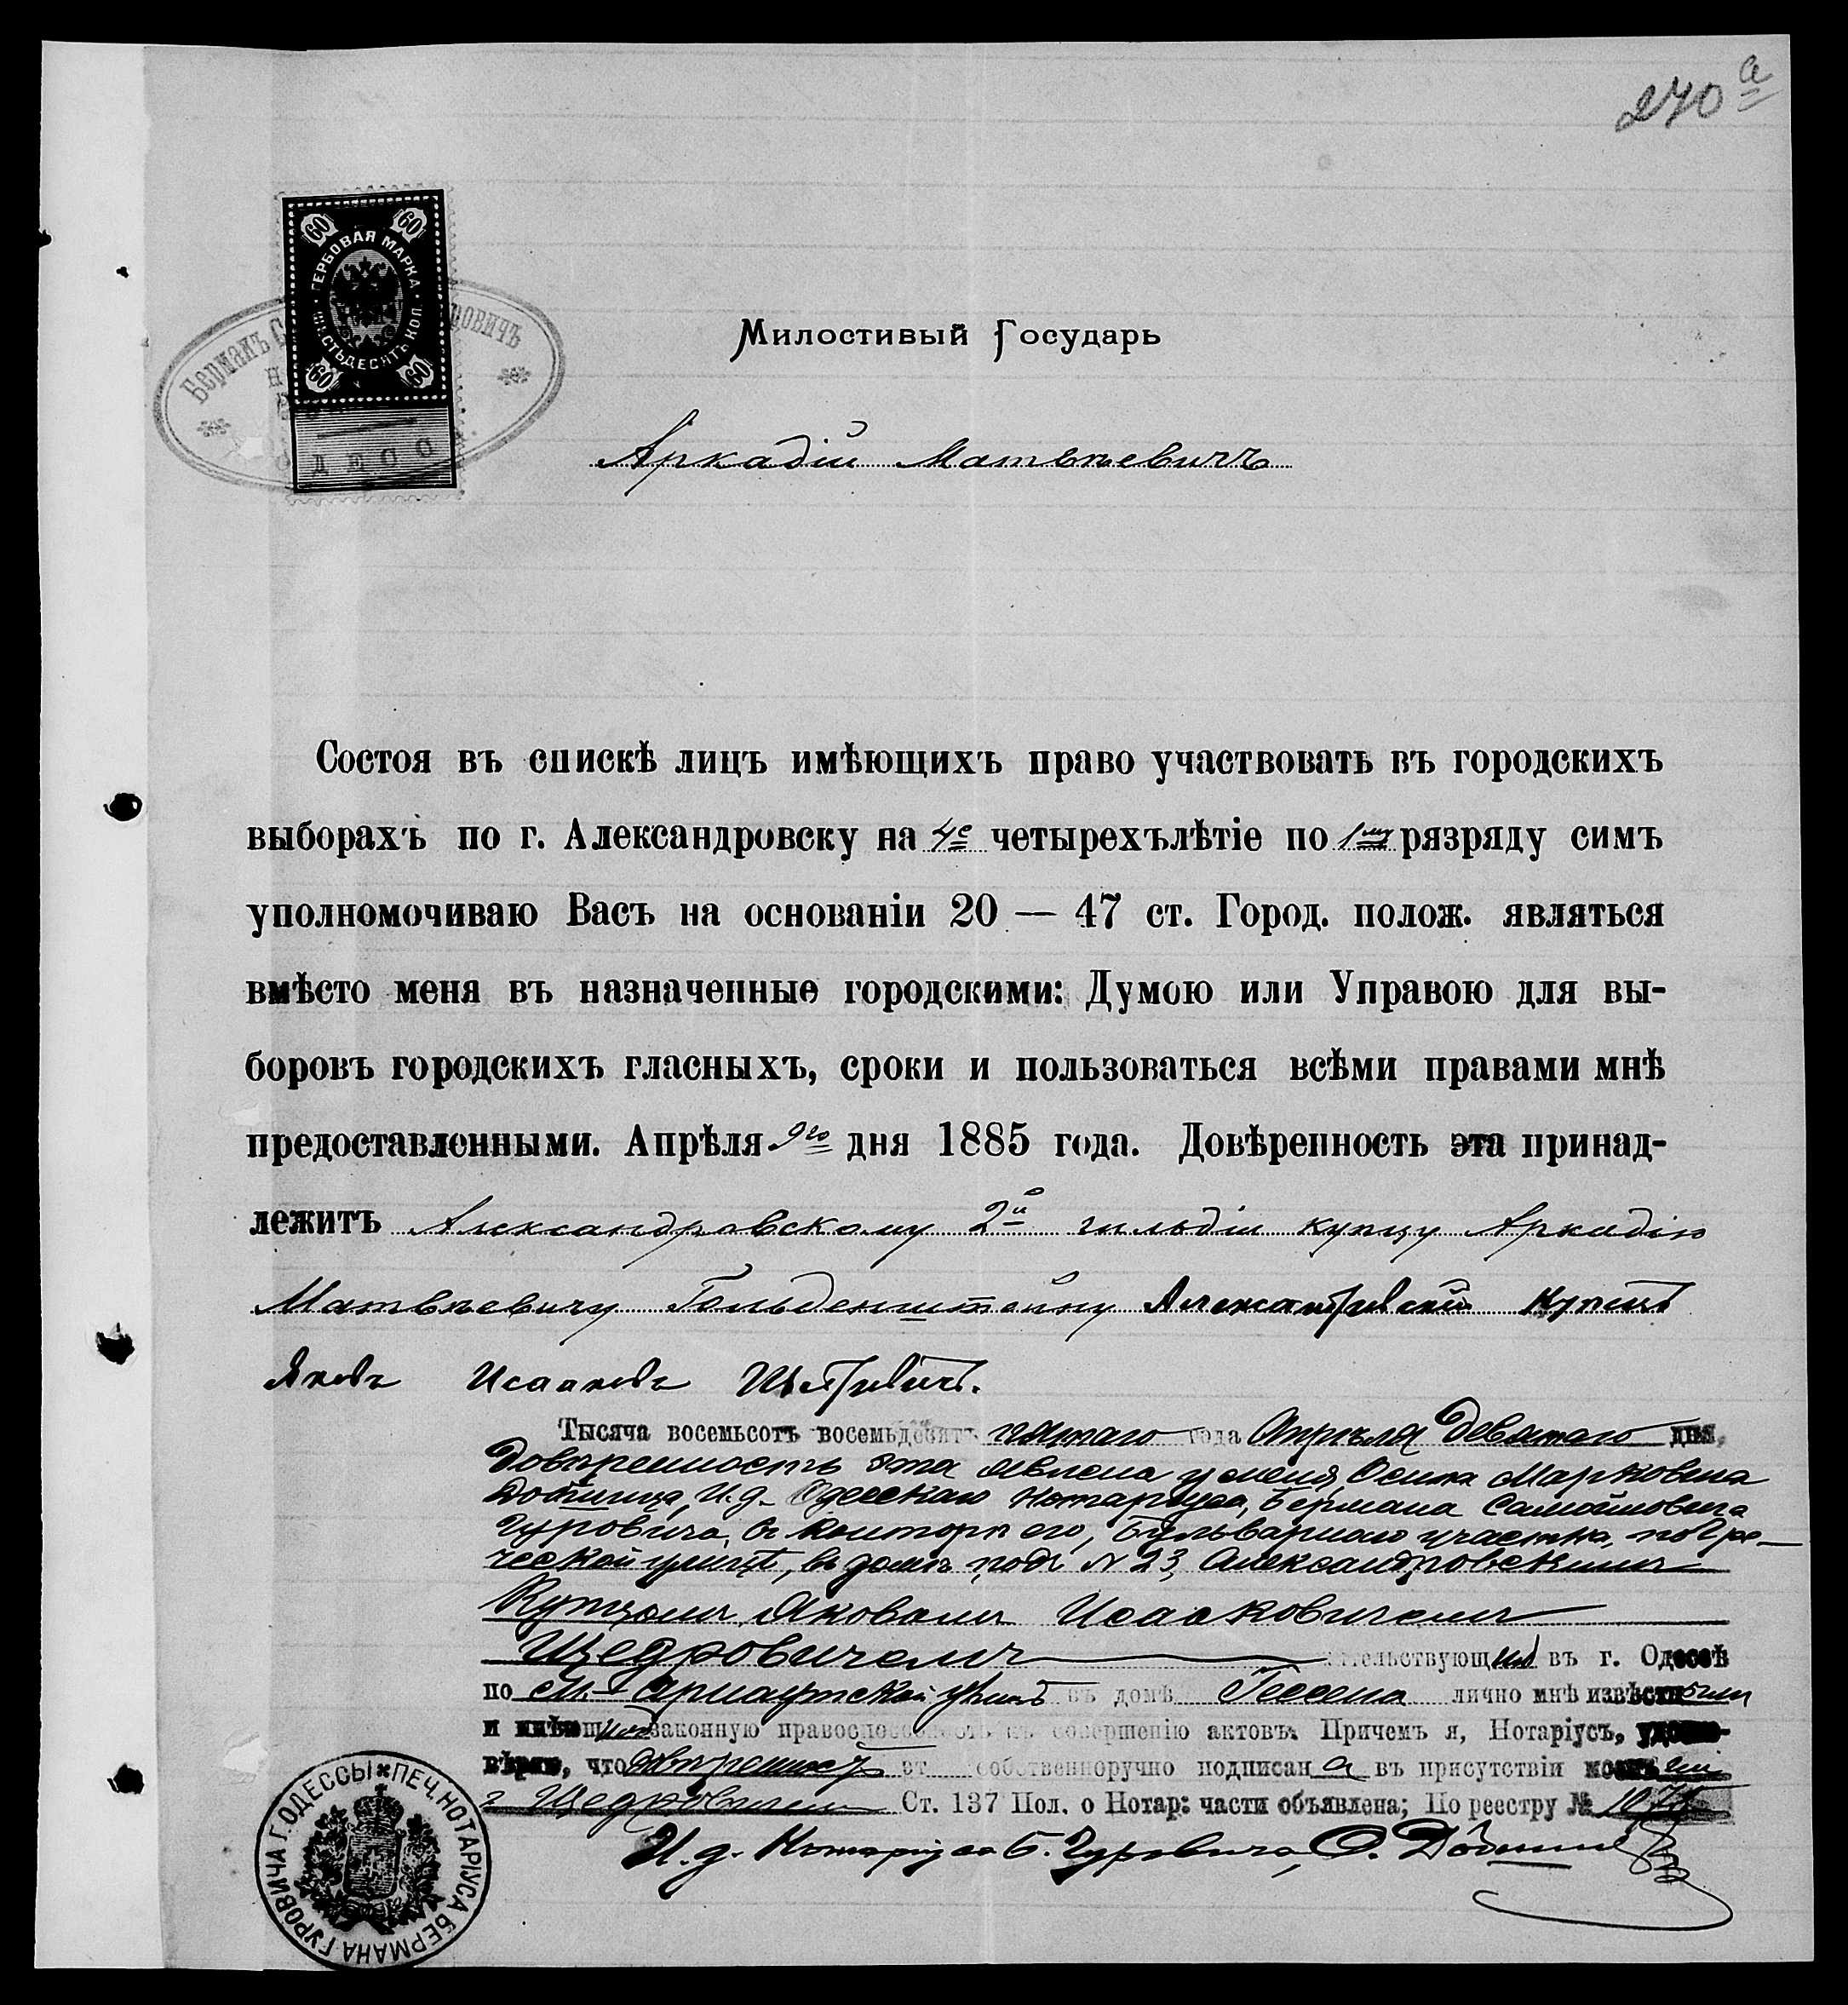 270 а
60 60
ГЕРБОВАЯ МАРКА
ШЕСТЬДЕСЯТЪ КОП.
60 60
Берманъ С довичъ
ОДЕСС
Милостивый Государь
Аркадій Матвѣевичъ
Состоя въ спискѣ лицъ имѣющихъ право участвовать въ городскихъ
выборахъ по г. Александровску на 4е четырехълѣтіе по 1му рязряду симъ
уполномочиваю Васъ на основаніи 20 — 47 ст. Город. полож. являться
вмѣсто меня въ назначенные городскими: Думою или Управою для вы-
боровъ городскихъ гласныхъ, сроки и пользоваться всѣми правами мнѣ
предоставленными. Апрѣля 9го дня 1885 года. Довѣренность эта принад-
лежитъ Александровскому 2й гильдіи купцу Аркадію
Матвѣевичу Гольденштейну Александровскій купецъ
Яковъ Исааковъ Щедровичъ.
Тысяча восемьсотъ восемьдесятъ пятаго года Апрѣля девятаго дня,
Довѣренность эта явлена у меня, Осипа Марковича
И. д. Одесскаго Нотаріуса, Бермана Самойловича
Гуровича, въ конторѣ его, Бульварнаго участка, по Гре-
ческой улицѣ, въ домѣ подъ N 23, Александровскимъ
Купцомъ Яковомъ Исааковичемъ
Щедровичемъ жительствующимъ въ г. Одессѣ
по М. Арнаутской улицѣ въ домѣ Гессена лично мнѣ извѣстнымъ
и имѣющимъ законную правоспособность къ совершенію актовъ. Причемъ я, Нотаріусъ, удосто-
вѣряю, что довѣренность эта собственноручно подписана въ присутствіи моемъ
г Щедровичемъ Ст. 137 Пол. о Нотар: части объявлена; По реестру №
И. д. Нотаріуса Б. Гуровича, О.
ПЕЧ. НОТАРІУСА БЕРМАНА ГУРОВИЧА Г. ОДЕССЫ